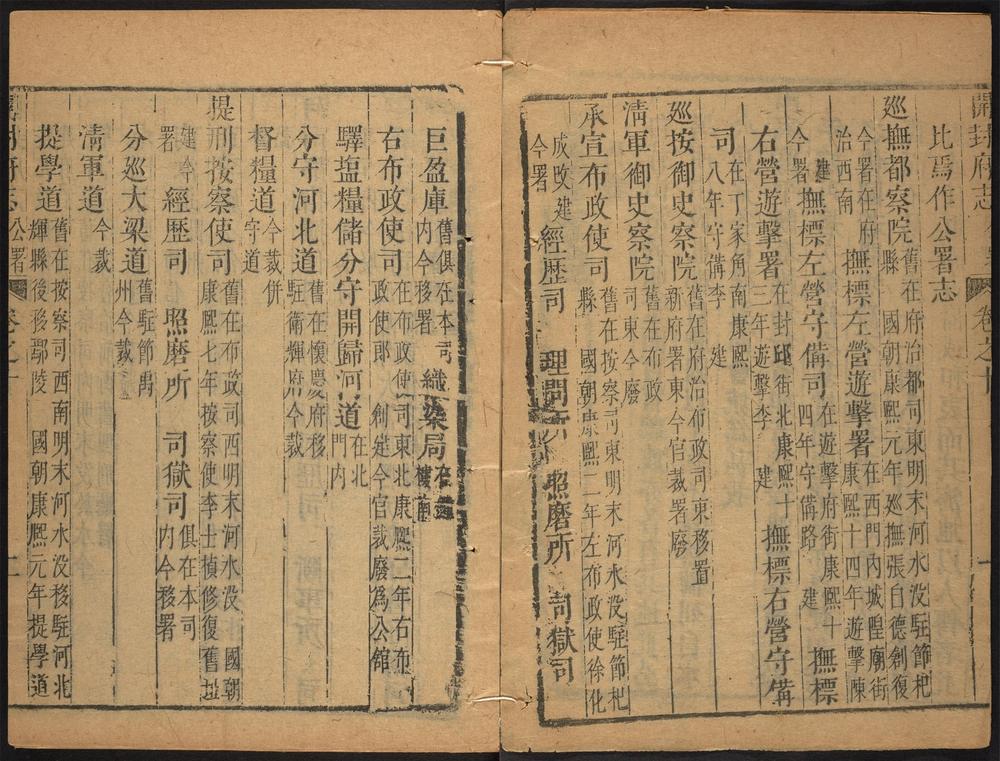 開封府志 卷之十 一
比焉作公署志
巡撫都察院舊在府治都司東明末河水没駐節杞縣 國朝康熙元年巡撫張自德創復
今署在府治西南 撫標左營遊擊署在西門內城隍廟街康熙十四年遊擊陳 建
今署 撫標左營守備司在遊擊府街康熙十四年守備路 建 撫標
右營遊擊署在封邱街北康熙十三年遊擊李 建 撫標右營守備
司在丁家角南康熙八年守備李 建
巡按御史察院舊在府治布政司東移置新府署東今官裁署廢
淸軍御史察院舊在布政司東今廢
承宣布政使司舊在按察司東明末河水没駐節杞縣 國朝康熙二年左布政使徐化
成改建今署 經歷司 理問所 照磨所 司獄司
巨盈庫舊俱在本司內今移署 織染局在 樓南
右布政使司在布政使司東北康熙二年右布政使郎 創建今官裁廢爲公舘
驛塩糧儲分守開歸河道在北門內
分守河北道舊在懷慶府移駐衛輝府今裁
督糧道今裁併守道
提刑按察使司舊在布政司西明末河水没 國朝康熙七年按察使李士楨修復舊址
建今署 經歷司 照磨所 司獄司俱在本司內今移署
分巡大梁道舊駐節禹州今裁
淸軍道今裁
提學道舊在按察司西南明末河水没移駐河北輝縣後移鄢陵 國朝康熙元年提學道
開封府志 公署 卷之十 二